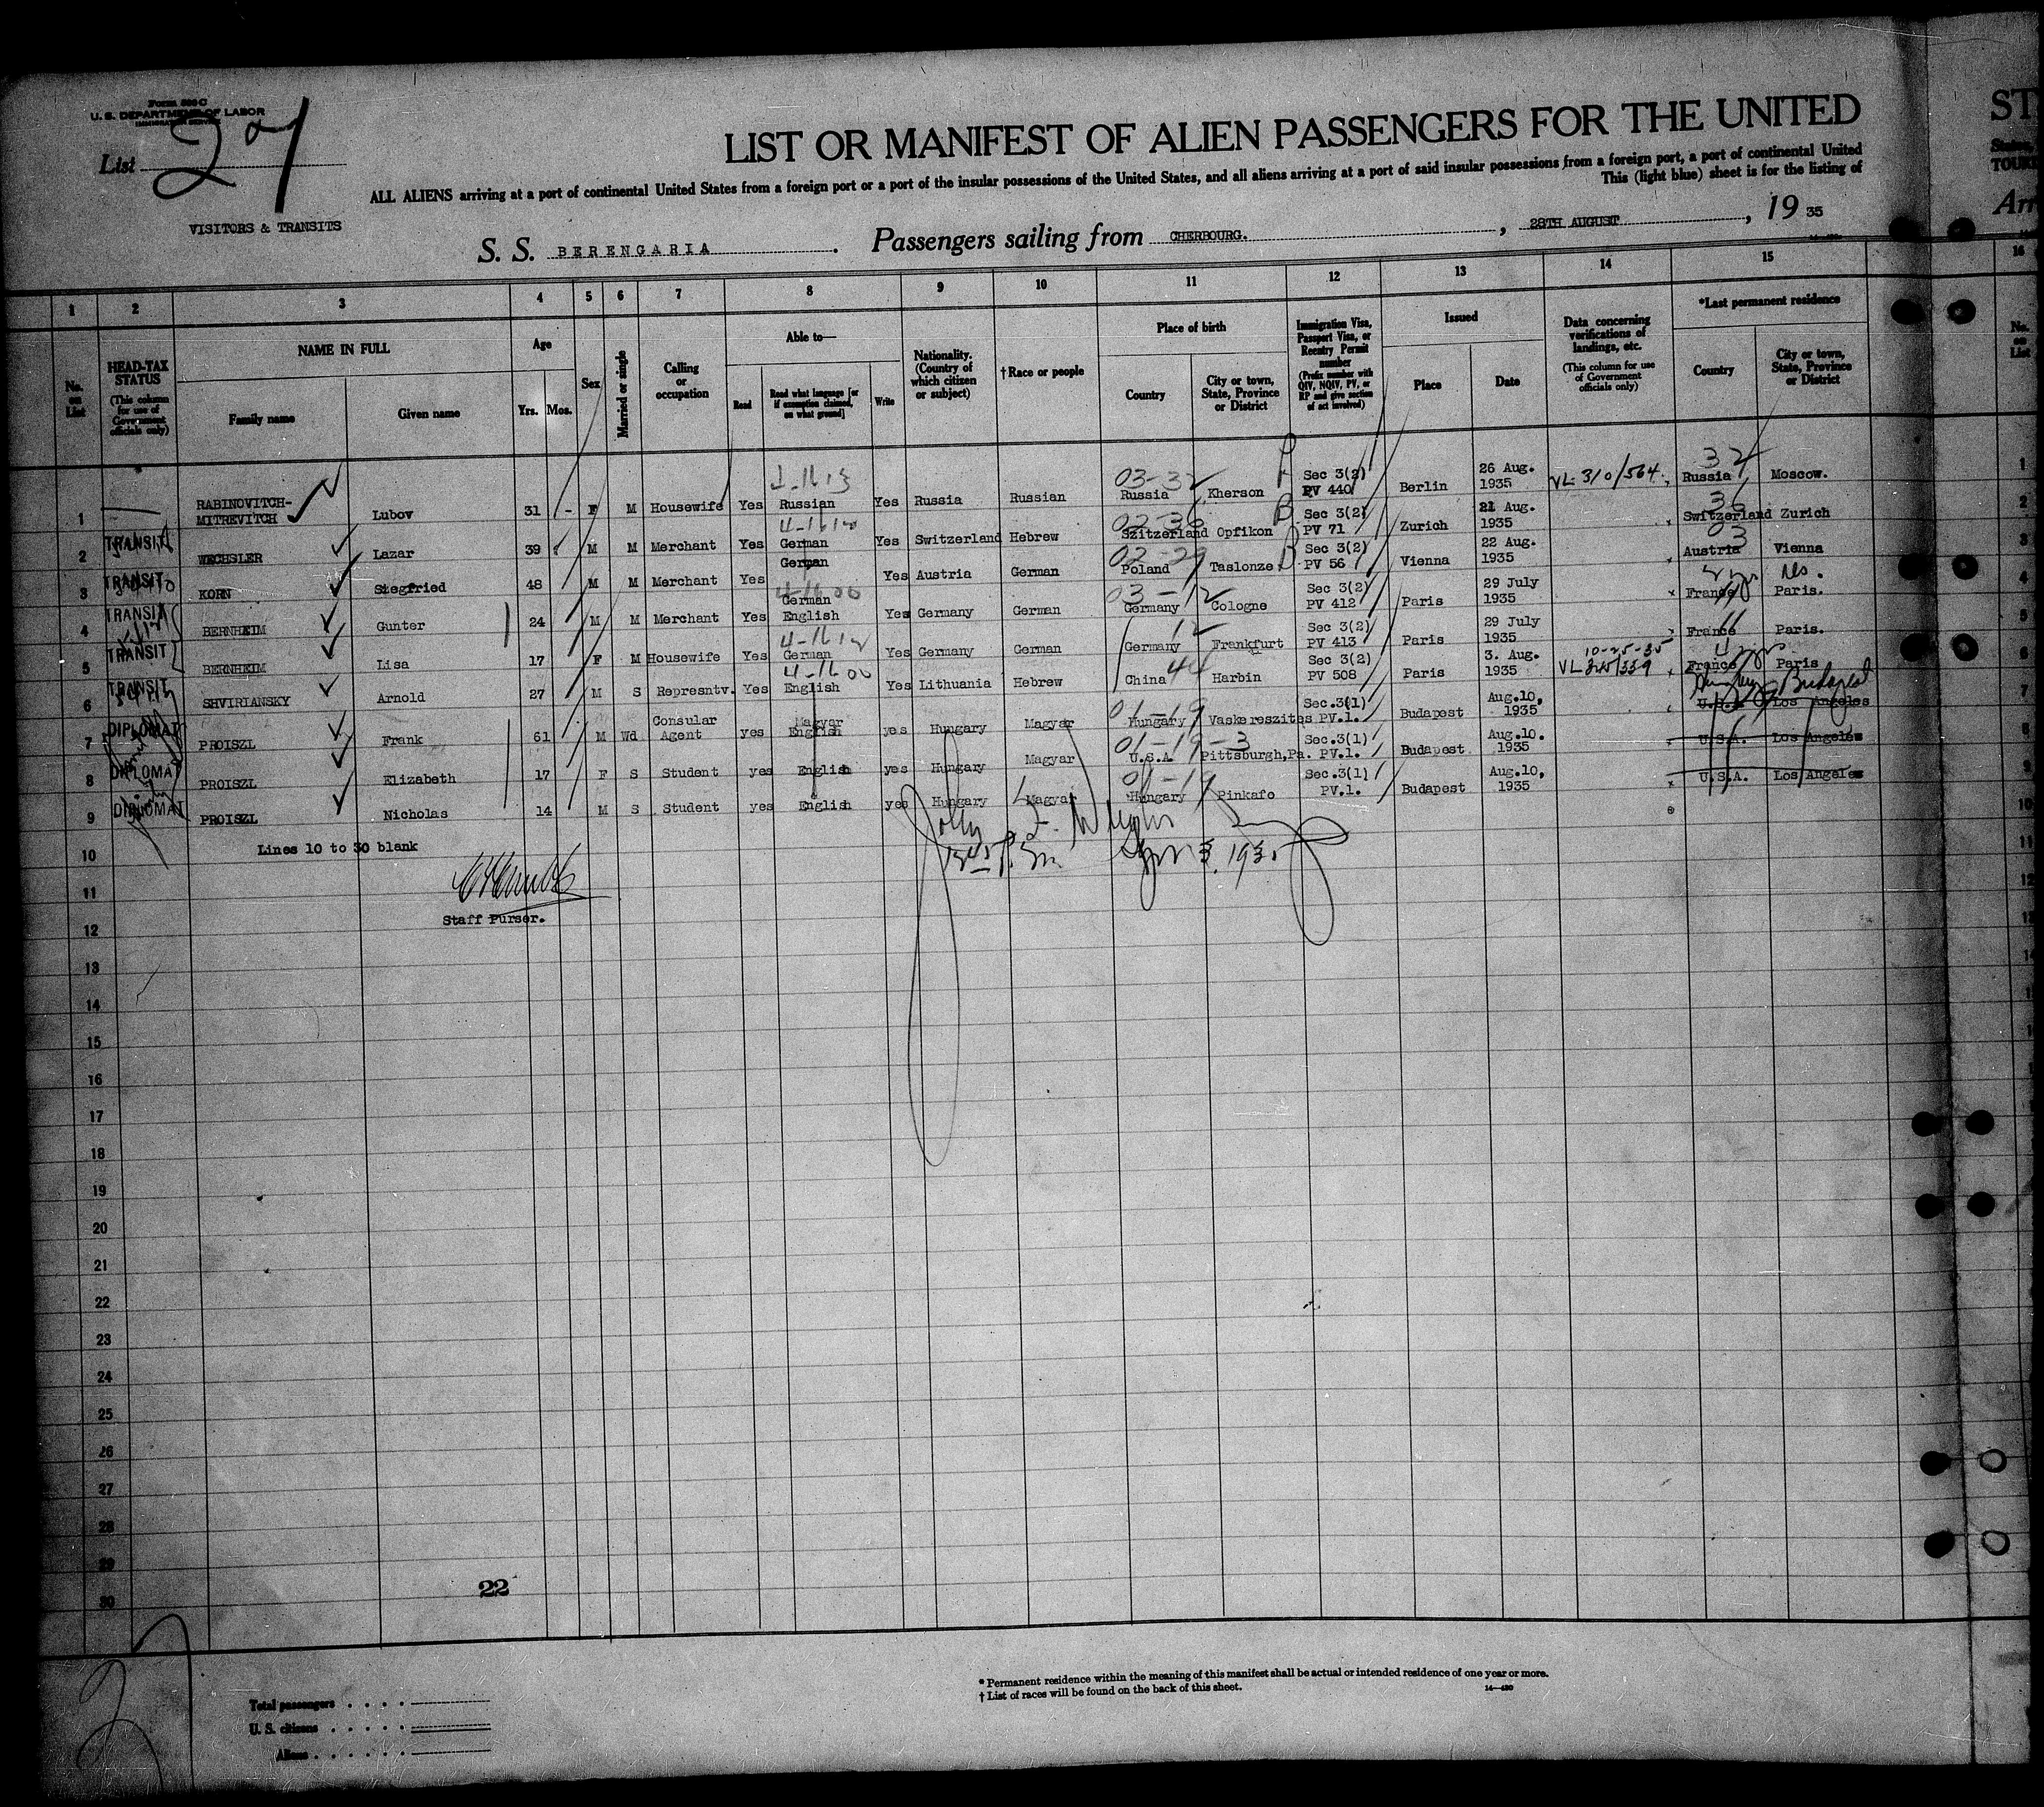 Form 500 C
U. S. DEPARTMENT OF LABOR
IMMIGRATION SERVICE
List 27
LIST OR MANIFEST OF ALIEN PASSENGERS FOR THE UNITED
ST
ALL ALIENS arriving at a port of continental United States from a foreign port or a port of the insular possessions of the United States, and all aliens arriving at a port of said insular possessions from a foreign port, a port of continental United
This (light blue) sheet is for the listing of
VISITORS & TRANSITS
S. S. BERENGARIA. Passengers sailing from CHERBOURG., 28TH AUGUST, 19 35
Arr
1 2 3 4 5 6 7 8 9 10 11 12 13 14 15 16
No. on List
HEAD-TAX STATUS (This column for use of Government officials only)
NAME IN FULL
Family name
Given name
Age
Yrs. Mos.
Sex
Married or single
Calling or occupation
Able to—
Read
Read what language [or if exemption claimed, on what ground]
Write
Nationality. (Country of which citizen or subject)
†Race or people
Place of birth
Country
City or town, State, Province or District
Immigration Visa, Passport Visa, or Reentry Permit number (Prefix number with QIV, NQIV, PV, or RP and give section of act involved)
Issued
Place
Date
Data concerning verifications of landings, etc. (This column for use of Government officials only)
*Last permanent residence
Country
City or town, State, Province or District
No. on List
1 RABINOVITCH-MITREVITCH Lubov 31 - F M Housewife Yes Russian Yes Russia Russian 03-32 Russia Kherson Sec 3(2) PV 440 Berlin 26 Aug. 1935 VL 310/564 32 Russia Moscow. 1
2 TRANSIT WECHSLER Lazar 39 M M Merchant Yes German Yes Switzerland Hebrew Szitzerland Opfikon Sec 3(2) PV 71 Zurich 21 Aug. 1935 36 Switzerland Zurich 2
3 TRANSIT KORN Siegfried 48 M M Merchant Yes German Yes Austria German Poland Taslonze Sec 3(2) PV 56 Vienna 22 Aug. 1935 03 Austria Vienna 3
4 TRANSIT BERNHEIM Gunter 24 M M Merchant Yes German English Yes Germany German 03-12 Germany Cologne Sec 3(2) PV 412 Paris 29 July 1935 France Paris. 4
5 TRANSIT BERNHEIM Lisa 17 F M Housewife Yes German Yes Germany German 12 Germany Frankfurt Sec 3(2) PV 413 Paris 29 July 1935 11 France Paris. 5
6 TRANSIT SHVIRIANSKY Arnold 27 M S Represntv. Yes English Yes Lithuania Hebrew China 44 Harbin Sec 3(2) PV 508 Paris 3. Aug. 1935 10-25-35 VL 325/339 France Paris 6
7 DIPLOMAT PROISZL Frank 61 M Wd Consular Agent yes Magyar English yes Hungary Magyar 01-19 Hungary Vaskereszites Sec.3(1) PV.1. Budapest Aug.10, 1935 Hungary Budapest U.S.A. Los Angeles 7
8 DIPLOMAT PROISZL Elizabeth 17 F S Student yes English yes Hungary Magyar 01-19-3 U.S.A. Pittsburgh,Pa. Sec.3(1) PV.1. Budapest Aug.10. 1935 U.S.A. Los Angeles
9 DIPLOMAT PROISZL Nicholas 14 M S Student yes English yes Hungary Magyar 01-19 Hungary Pinkafo Sec.3(1) PV.1. Budapest Aug.10, 1935 U.S.A. Los Angeles 9
10 Lines 10 to 30 blank 10
11
Staff Purser.
12
13
14
15
16
17
18
19
20
21
22
23
24
25
26
27
28
29
30
22
* Permanent residence within the meaning of this manifest shall be actual or intended residence of one year or more.
† List of races will be found on the back of this sheet.
14—420
Total passengers
U. S. citizens
Aliens